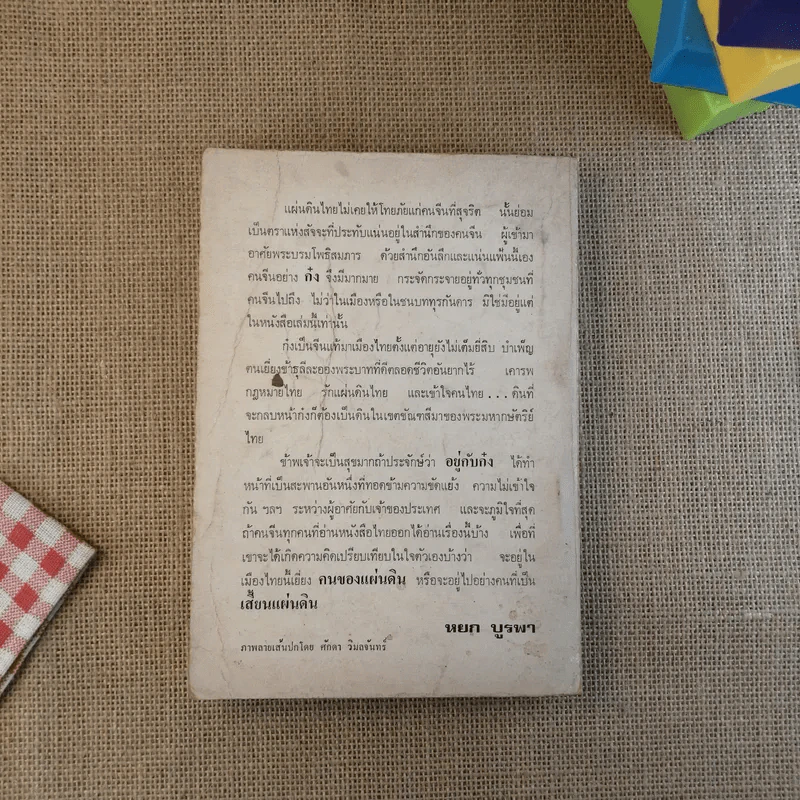 แผ่นดินไทยไม่เคยให้โทยภัยแก่คนจีนที่สุจริต นั้นย่อม
เป็นตราแห่งสัจจะที่ประทับแน่นอยู่ในสำนึกของคนจีน ผู้เข้ามา
อาศัยพระบรมโพธิสมภาร ด้วยสำนึกอันลึกและแน่นแฟ้นนี้เอง
คนจีนอย่าง ก๋ง จึงมีมากมาย กระจัดกระจายอยู่ทั่วทุกชุมชนที่
คนจีนไปถึง ไม่ว่าในเมืองหรือในชนบททุรกันดาร มิใช่มีอยู่แต่
ในหนังสือเล่มนี้เท่านั้น
ก๋งเป็นจีนแท้มาเมืองไทยตั้งแต่อายุยังไม่เต็มยี่สิบ บำเพ็ญ
ตนเยี่ยงข้าธุลีละอองพระบาทที่ดีตลอดชีวิตอันยากไร้ เคารพ
กฎหมายไทย รักแผ่นดินไทย และเข้าใจคนไทย ... ดินที่
จะกลบหน้าก๋งก็ต้องเป็นดินในเขตขัณฑสีมาของพระมหากษัตริย์
ไทย
ข้าพเจ้าจะเป็นสุขมากถ้าประจักษ์ว่า อยู่กับก๋ง ได้ทำ
หน้าที่เป็นสะพานอันหนึ่งที่ทอดข้ามความขัดแย้ง ความไม่เข้าใจ
กัน ฯลฯ ระหว่างผู้อาศัยกับเจ้าของประเทศ และจะภูมิใจที่สุด
ถ้าคนจีนทุกคนที่อ่านหนังสือไทยออกได้อ่านเรื่องนี้บ้าง เพื่อที่
เขาจะได้เกิดความคิดเปรียบเทียบในใจตัวเองบ้างว่า จะอยู่ใน
เมืองไทยนี้เยี่ยง คนของแผ่นดิน หรือจะอยู่ไปอย่างคนที่เป็น
เสี้ยนแผ่นดิน
หยก บูรพา
ภาพลายเส้นปกโดย ศักดา วิมลจันทร์